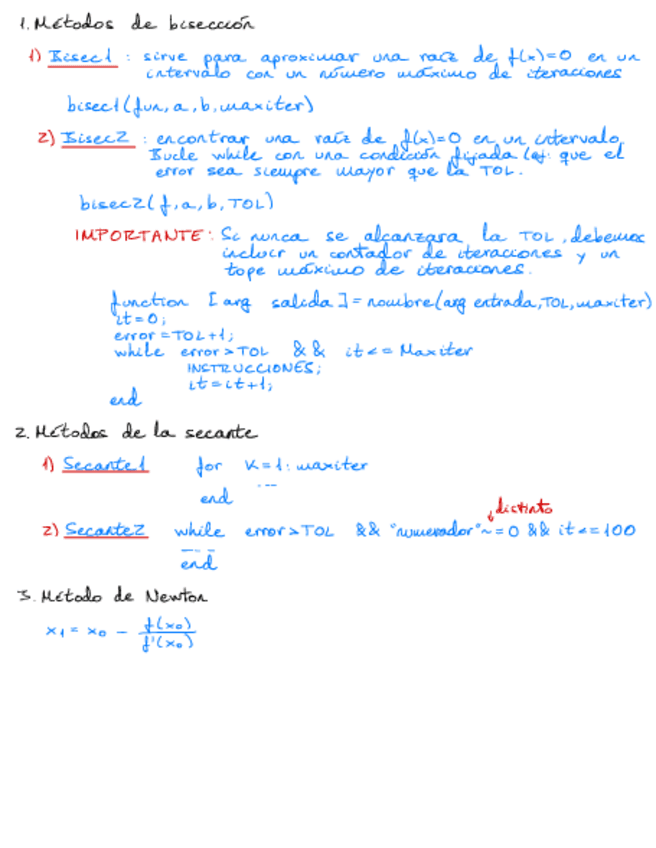 1. Métodos de bisección
1) Bisec1 : sirve para aproximar una raíz de f(x)=0 en un
intervalo con un número máximo de iteraciones
bisec1(fun, a, b, maxiter)
2) Bisec2 : encontrar una raíz de f(x)=0 en un intervalo.
Bucle while con una condición fijada (ej: que el
error sea siempre mayor que la TOL.
bisec2(f, a, b, TOL)
IMPORTANTE: Si nunca se alcanzara la TOL, debemos
incluir un contador de iteraciones y un
tope máximo de iteraciones.
function [arg salida] = nombre(arg entrada, TOL, maxiter)
it=0;
error = TOL+1;
while error>TOL && it<= Maxiter
INSTRUCCIONES;
it=it+1;
end
2. Métodos de la secante
1) Secante1 for K=1:maxiter
---
end
distinto
2) Secante2 while error>TOL && "numerador"~=0 && it<=100
---
end
3. Método de Newton
x₁ = x₀ - f(x₀)/f'(x₀)